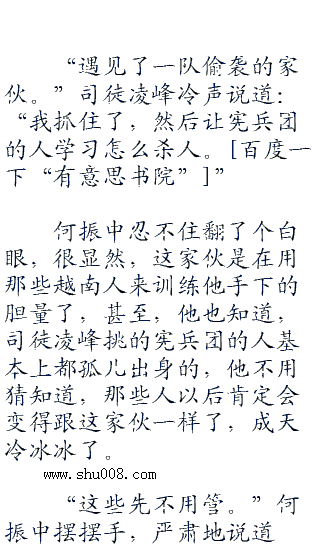 “遇见了一队偷袭的家
伙。”司徒凌峰冷声说道：
“我抓住了，然后让宪兵团
的人学习怎么杀人。[百度一
下“有意思书院”]”
何振中忍不住翻了个白
眼，很显然，这家伙是在用
那些越南人来训练他手下的
胆量了，甚至，他也知道，
司徒凌峰挑的宪兵团的人基
本上都孤儿出身的，他不用
猜知道，那些人以后肯定会
变得跟这家伙一样了，成天
冷冰冰了。
www.shu008.com
“这些先不用管。”何
振中摆摆手，严肃地说道